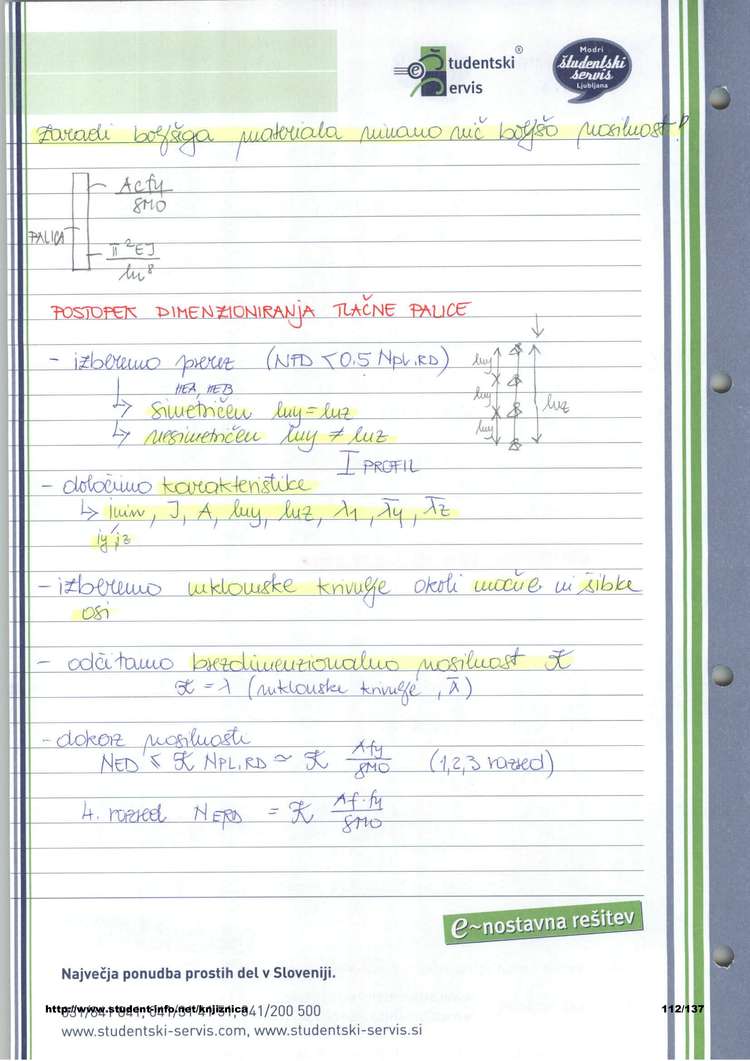 Študentski®
Servis
Modri
študentski
servis
Ljubljana
Zaradi boljšega materiala nimamo nič boljšo nosilnost!
Acfy
γM0
PALICA
π²EJ
lu²
POSTOPEK DIMENZIONIRANJA TLAČNE PALICE
- izberemo prerez (NED < 0.5 NPL.RD)
HEA, HEB
↳ simetričen luy = luz
↳ nesimetričen luy ≠ luz
luy
luy
luy
luz
I PROFIL
- določimo karakteristike
↳ imin, J, A, luy, luz, λ1, λ̄y, λ̄z
iy, iz
- izberemo uklonske krivulje okoli močne in šibke
osi
- odčitamo brezdimenzionalno nosilnost ϰ
ϰ = λ (uklonske krivulje, λ̄)
- dokaz nosilnosti
NED ≤ ϰ NPL.RD ≃ ϰ Afy / γM0 (1,2,3 razred)
4. razred NERD = ϰ Af·fy / γM0
e~nostavna rešitev
Največja ponudba prostih del v Sloveniji.
http://www.student-info.net/knjiznica
041/200 500
112/137
www.studentski-servis.com, www.studentski-servis.si